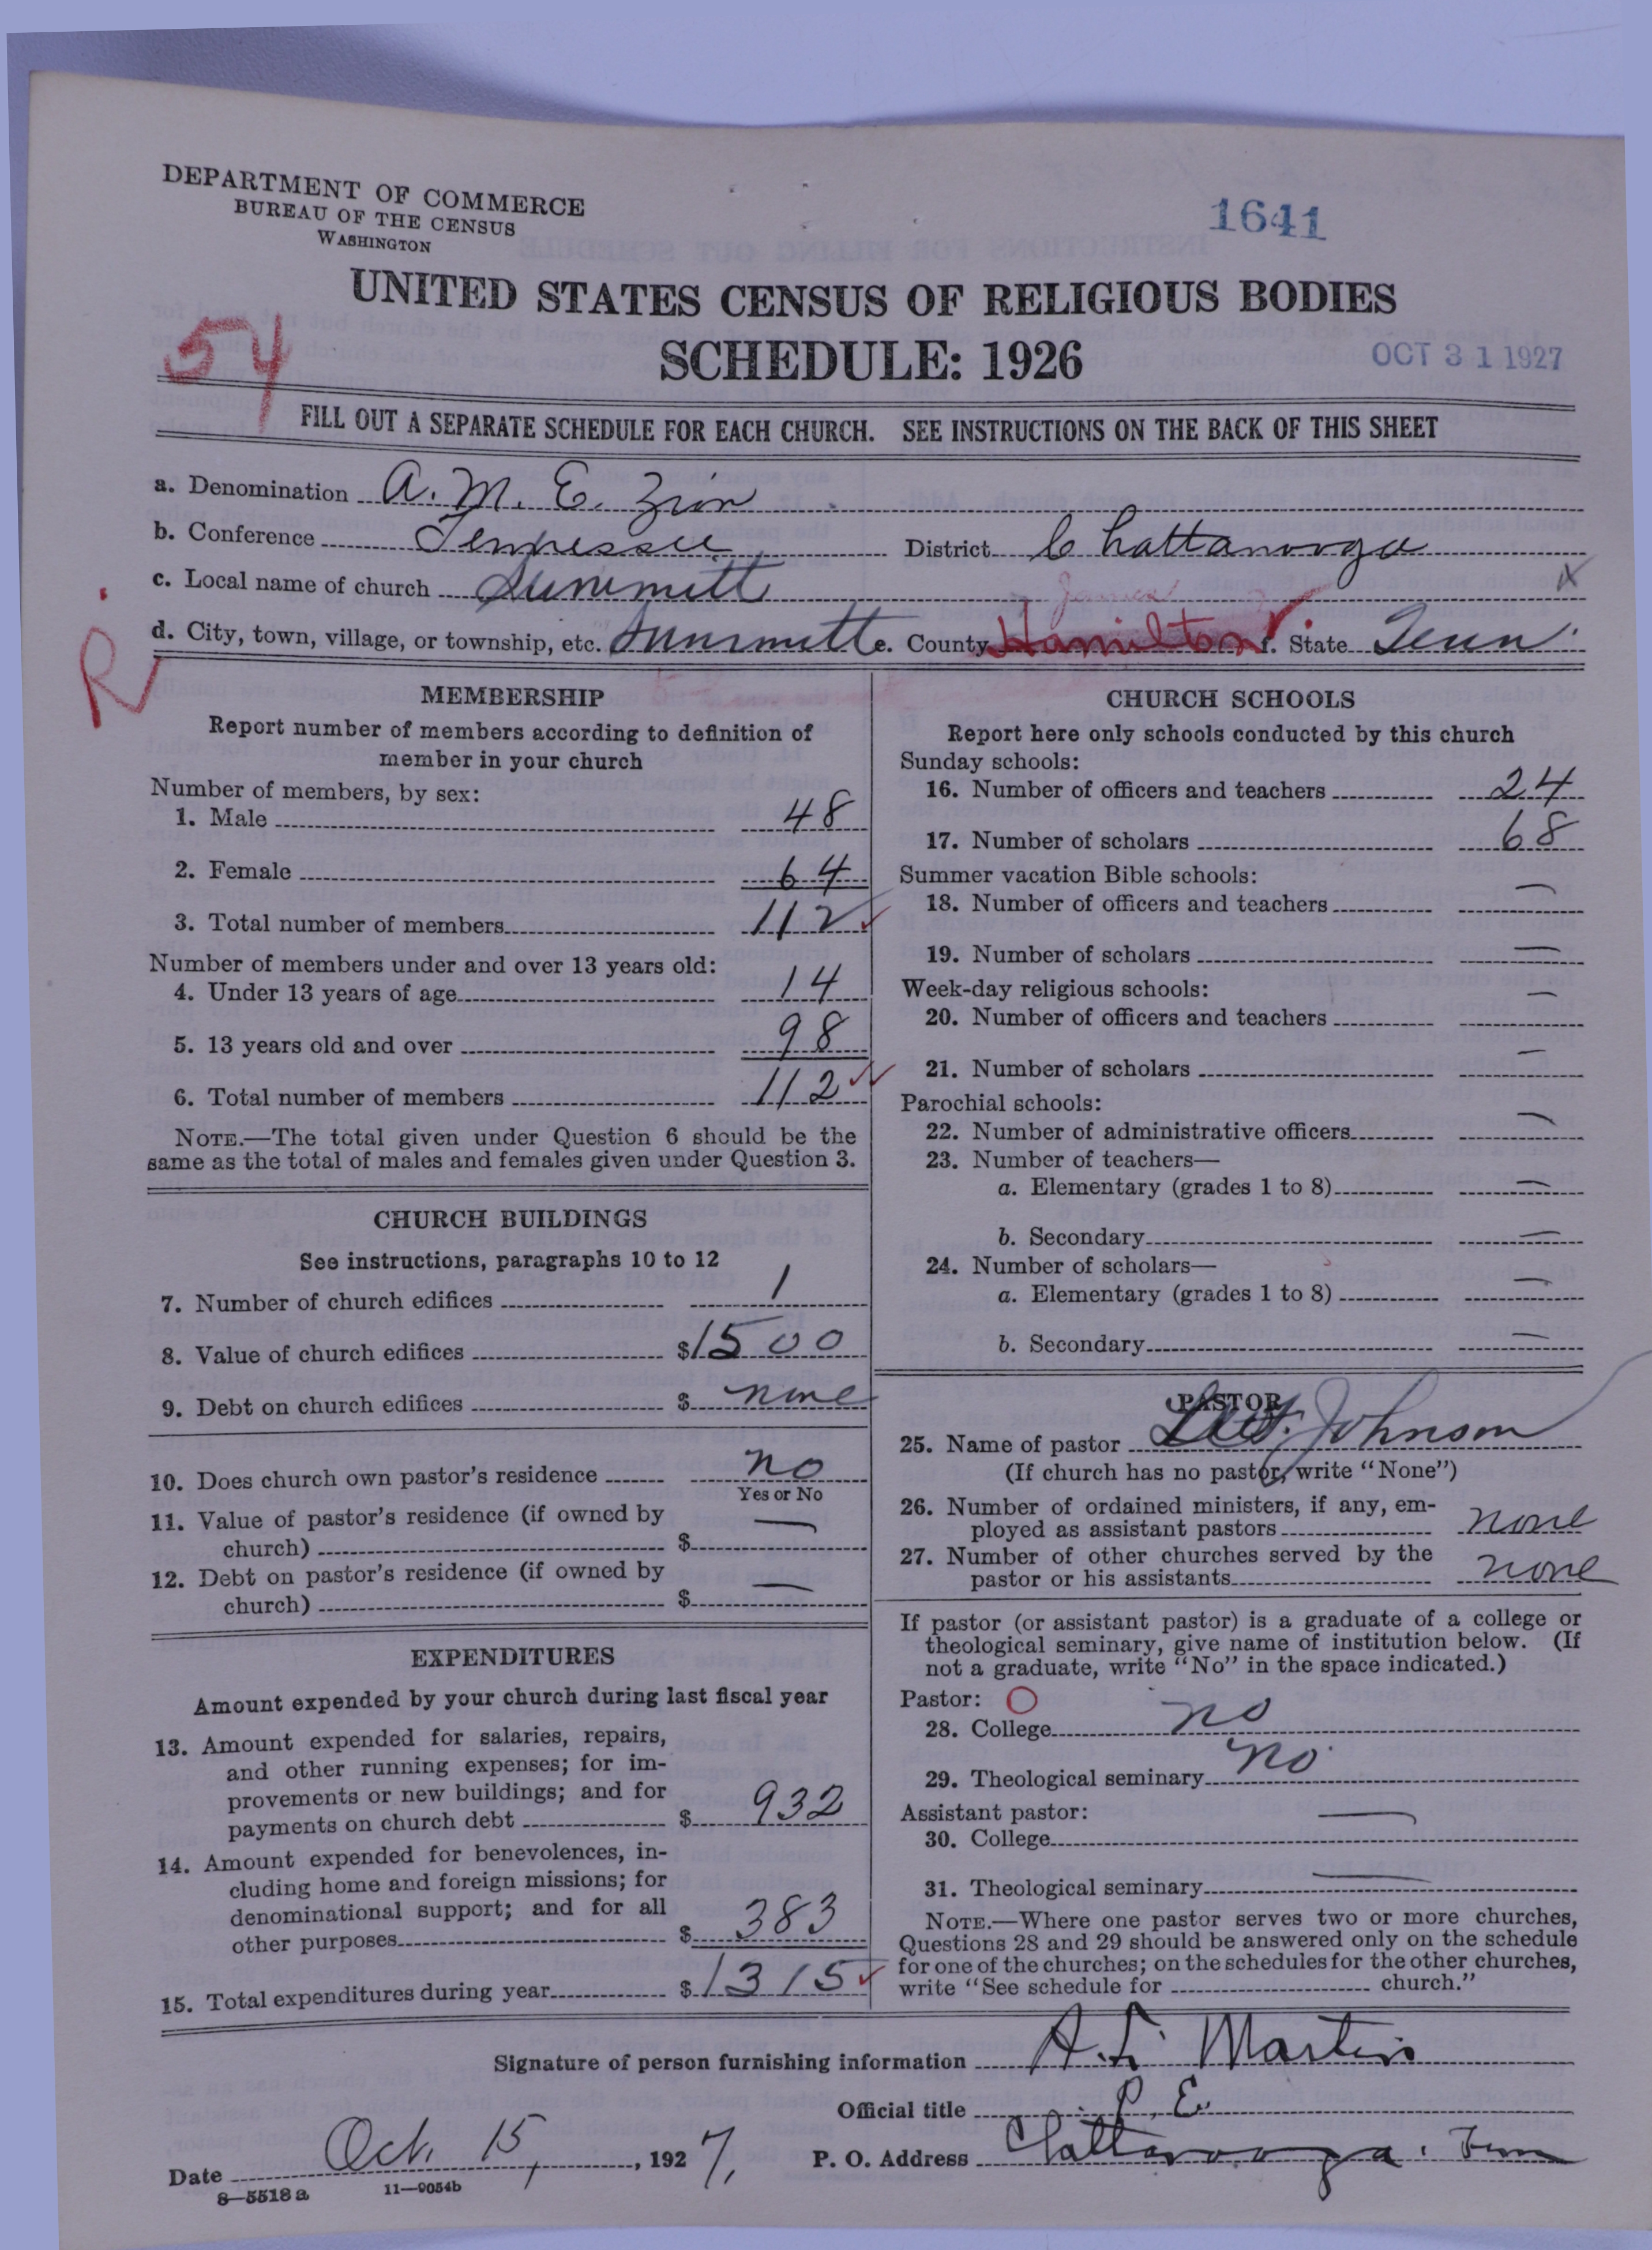 DEPARTMENT OF COMMERCE
BUREAU OF THE CENSUS
WASHINGTON
1641
UNITED STATES CENSUS OF RELIGIOUS BODIES
SCHEDULE: 1926
OCT 31 1927
54
FILL OUT A SEPARATE SCHEDULE FOR EACH CHURCH. SEE INSTRUCTIONS ON THE BACK OF THIS SHEET
a. Denomination A. M. E. Zion
b. Conference Tennessee District Chattanooga
c. Local name of church Summitt
d. City, town, village, or township, etc. Summitt e. County Hamilton f. State Tenn.
R
MEMBERSHIP
Report number of members according to definition of
member in your church
Number of members, by sex:
1. Male 48
2. Female 64
3. Total number of members 112
Number of members under and over 13 years old:
4. Under 13 years of age 14
5. 13 years old and over 98
6. Total number of members 112
NOTE.—The total given under Question 6 should be the
same as the total of males and females given under Question 3.
CHURCH BUILDINGS
See instructions, paragraphs 10 to 12
7. Number of church edifices 1
8. Value of church edifices $1500
9. Debt on church edifices $ none
10. Does church own pastor's residence no
Yes or No
11. Value of pastor's residence (if owned by
church) $ —
12. Debt on pastor's residence (if owned by
church) $ —
EXPENDITURES
Amount expended by your church during last fiscal year
13. Amount expended for salaries, repairs,
and other running expenses; for im-
provements or new buildings; and for
payments on church debt $ 932
14. Amount expended for benevolences, in-
cluding home and foreign missions; for
denominational support; and for all
other purposes $ 383
15. Total expenditures during year $ 1315
CHURCH SCHOOLS
Report here only schools conducted by this church
Sunday schools:
16. Number of officers and teachers 24
17. Number of scholars 68
Summer vacation Bible schools:
18. Number of officers and teachers —
19. Number of scholars —
Week-day religious schools:
20. Number of officers and teachers —
21. Number of scholars —
Parochial schools:
22. Number of administrative officers —
23. Number of teachers—
a. Elementary (grades 1 to 8) —
b. Secondary —
24. Number of scholars—
a. Elementary (grades 1 to 8) —
b. Secondary —
PASTOR
25. Name of pastor Johnson
(If church has no pastor, write "None")
26. Number of ordained ministers, if any, em-
ployed as assistant pastors none
27. Number of other churches served by the
pastor or his assistants none
If pastor (or assistant pastor) is a graduate of a college or
theological seminary, give name of institution below. (If
not a graduate, write "No" in the space indicated.)
Pastor:
28. College no
29. Theological seminary no
Assistant pastor:
30. College —
31. Theological seminary —
NOTE.—Where one pastor serves two or more churches,
Questions 28 and 29 should be answered only on the schedule
for one of the churches; on the schedules for the other churches,
write "See schedule for church."
Signature of person furnishing information A. L. Martin
Official title P. E.
Date Oct. 15, 1927, P. O. Address Chattanooga. Tenn
8—5518 a 11—9054b